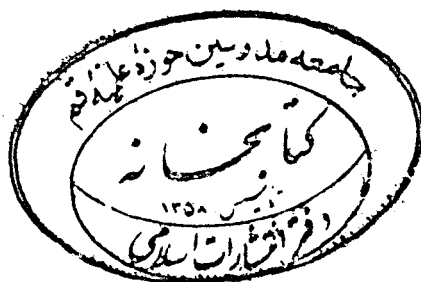 جامعه مدرسین حوزه علمیه قم
کتابخانه
تأسیس ۱۳۵۸
دفتر انتشارات اسلامی